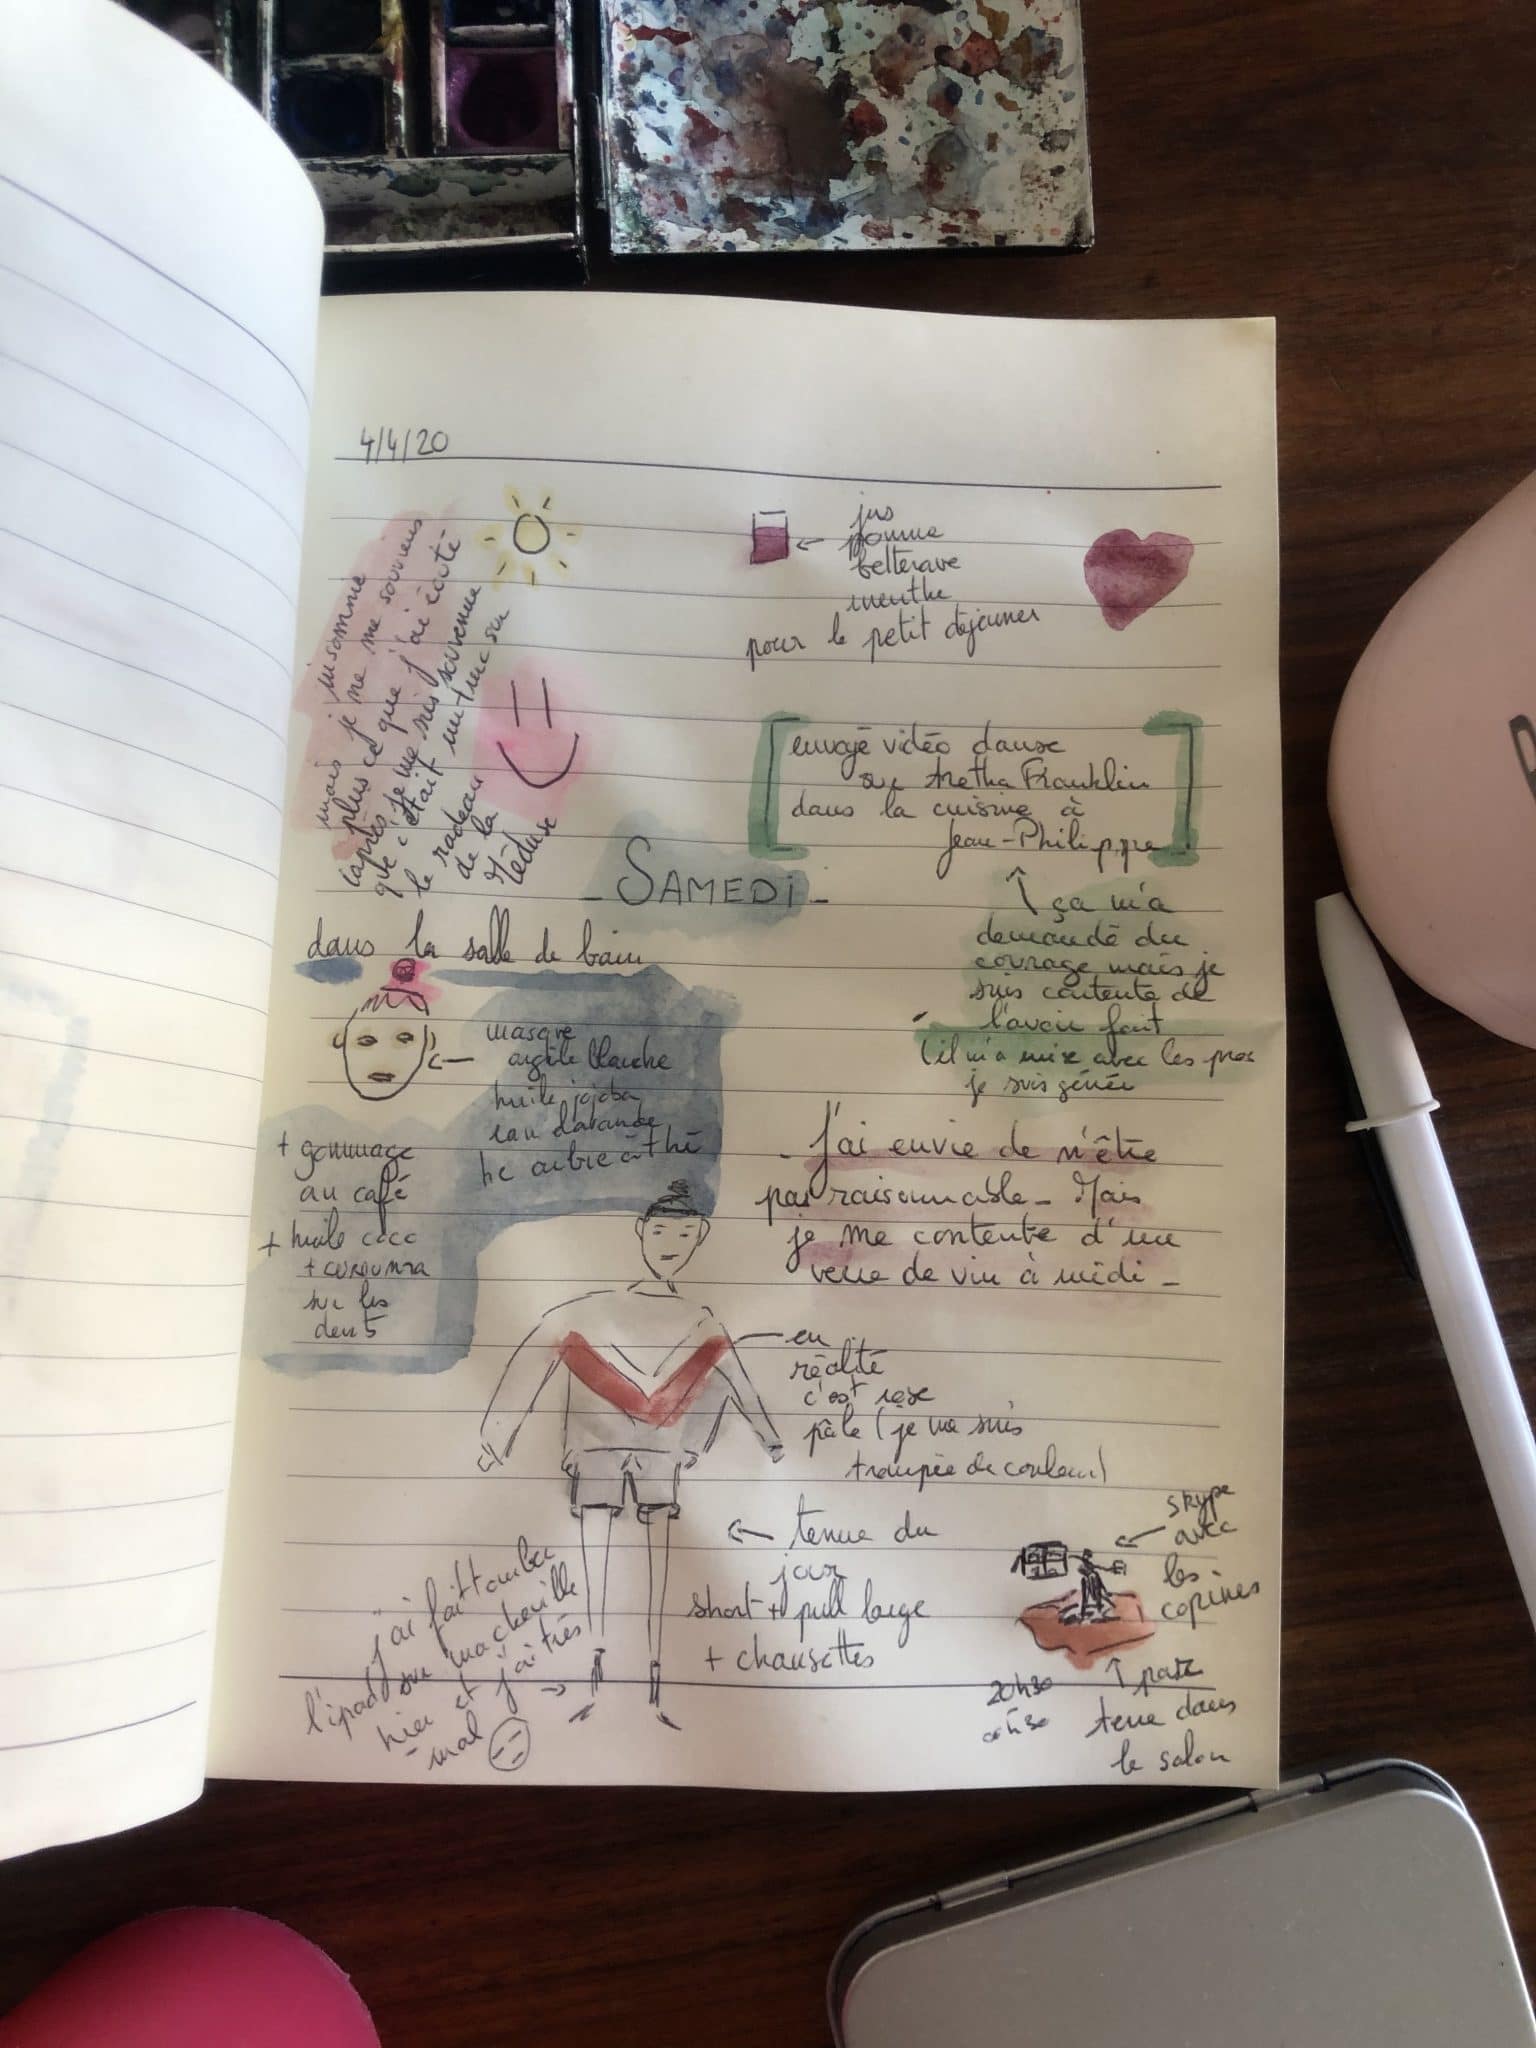 4/4/20
insomnie
mais je ne me souviens
plus ce que j'ai écouté
(après je me suis souvenue
que c'était un truc sur
le radeau
de la
Méduse
jus
pomme
betterave
menthe
pour le petit déjeuner
[envoyé vidéo danse
sur Aretha Franklin
dans la cuisine à
Jean-Philippe]
- SAMEDI -
ça m'a
demandé du
courage mais je
suis contente de
l'avoir fait
(il m'a mise avec les pros
je suis gênée
dans la salle de bain
masque
argile blanche
huile jojoba
eau
he arbre à thé
+ gommage
au café
+ huile coco
+ curcuma
sur les
dents
- J'ai envie de n'être
pas raisonnable - Mais
je me contente d'un
verre de vin à midi -
en
réalité
c'est rose
pâle (je me suis
trompée de couleur)
← tenue du
jour
short + pull large
+ chaussettes
j'ai fait tomber
l'ipad sur ma cheville
hier et j'ai très
mal
skype
avec
les
copines
20h30
par
terre dans
le salon